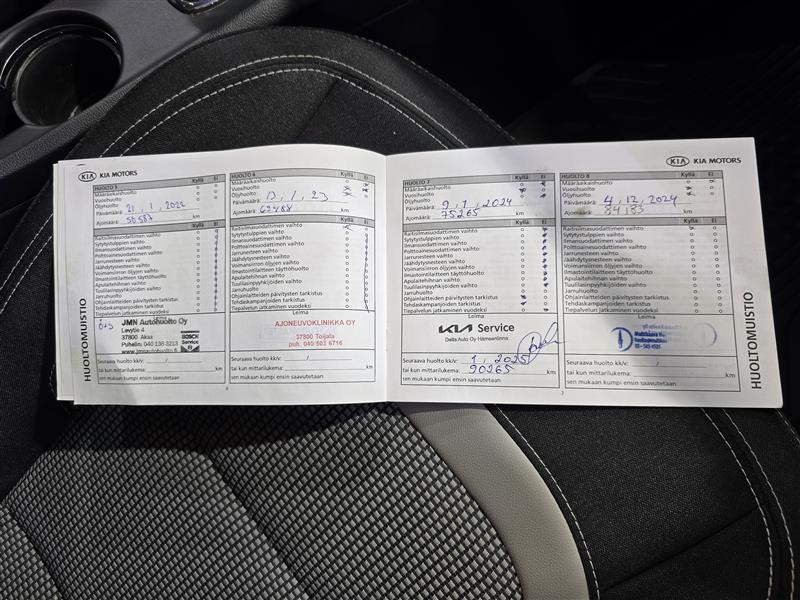 KIA KIA MOTORS
HUOLTOMUISTIO
HUOLTO 5 Kyllä Ei
Määräaikaishuolto
Vuosihuolto
Öljyhuolto
Päivämäärä: 21, 1, 2022
Ajomäärä: 56587 km
Kyllä Ei
Raitisilmasuodattimen vaihto
Sytytystulppien vaihto
Ilmansuodattimen vaihto
Polttoainesuodattimen vaihto
Jarrunesteen vaihto
Jäähdytysnesteen vaihto
Voimansiirron öljyjen vaihto
Ilmastointilaitteen täyttöhuolto
Apulaitehihnan vaihto
Tuulilasinpyyhkijöiden vaihto
Jarruhuolto
Ohjainlaitteiden päivitysten tarkistus
Tehdaskampanjoiden tarkistus
Tiepalvelun jatkaminen vuodeksi
Leima
Ö+S
JMN Autohuolto Oy
Lewytie 4
37800 Akaa
Puhelin 040 136 3213
www.jmnautohuolto.fi
BOSCH
Service
Seuraava huolto kk/v:
tai kun mittarilukema: km
sen mukaan kumpi ensin saavutetaan
HUOLTO 6 Kyllä Ei
Määräaikaishuolto
Vuosihuolto
Öljyhuolto
Päivämäärä: 13, 1, 23
Ajomäärä: 69488 km
Kyllä Ei
Raitisilmasuodattimen vaihto
Sytytystulppien vaihto
Ilmansuodattimen vaihto
Polttoainesuodattimen vaihto
Jarrunesteen vaihto
Jäähdytysnesteen vaihto
Voimansiirron öljyjen vaihto
Ilmastointilaitteen täyttöhuolto
Apulaitehihnan vaihto
Tuulilasinpyyhkijöiden vaihto
Jarruhuolto
Ohjainlaitteiden päivitysten tarkistus
Tehdaskampanjoiden tarkistus
Tiepalvelun jatkaminen vuodeksi
Leima
AJONEUVOKLINIKKA OY
37800 Toijala
puh. 040 503 6716
Seuraava huolto kk/v:
tai kun mittarilukema: km
sen mukaan kumpi ensin saavutetaan
6
KIA KIA MOTORS
HUOLTOMUISTIO
HUOLTO 7 Kyllä Ei
Määräaikaishuolto
Vuosihuolto
Öljyhuolto
Päivämäärä: 9, 1, 2024
Ajomäärä: 75265 km
Kyllä Ei
Raitisilmasuodattimen vaihto
Sytytystulppien vaihto
Ilmansuodattimen vaihto
Polttoainesuodattimen vaihto
Jarrunesteen vaihto
Jäähdytysnesteen vaihto
Voimansiirron öljyjen vaihto
Ilmastointilaitteen täyttöhuolto
Apulaitehihnan vaihto
Tuulilasinpyyhkijöiden vaihto
Jarruhuolto
Ohjainlaitteiden päivitysten tarkistus
Tehdaskampanjoiden tarkistus
Tiepalvelun jatkaminen vuodeksi
Leima
KIA Service
Delta Auto Oy Hämeenlinna
Seuraava huolto kk/v: 1, 2025
tai kun mittarilukema: 90265 km
sen mukaan kumpi ensin saavutetaan
HUOLTO 8 Kyllä Ei
Määräaikaishuolto
Vuosihuolto
Öljyhuolto
Päivämäärä: 4, 12, 2024
Ajomäärä: 84183 km
Kyllä Ei
Raitisilmasuodattimen vaihto
Sytytystulppien vaihto
Ilmansuodattimen vaihto
Polttoainesuodattimen vaihto
Jarrunesteen vaihto
Jäähdytysnesteen vaihto
Voimansiirron öljyjen vaihto
Ilmastointilaitteen täyttöhuolto
Apulaitehihnan vaihto
Tuulilasinpyyhkijöiden vaihto
Jarruhuolto
Ohjainlaitteiden päivitysten tarkistus
Tehdaskampanjoiden tarkistus
Tiepalvelun jatkaminen vuodeksi
Leima
Seuraava huolto kk/v:
tai kun mittarilukema: km
sen mukaan kumpi ensin saavutetaan
7